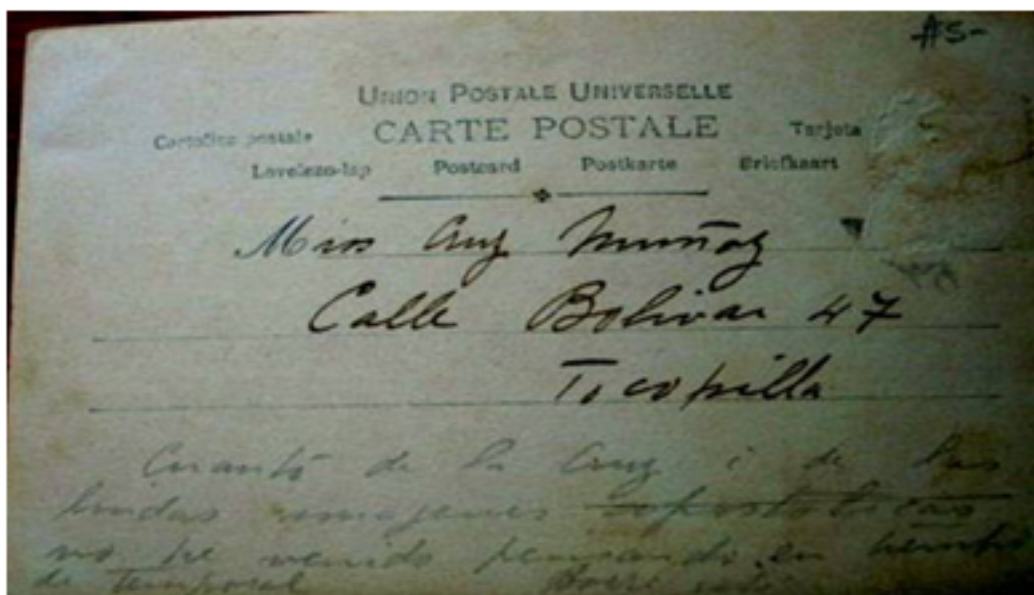 #5-
UNION POSTALE UNIVERSELLE
Cartolina postale CARTE POSTALE Tarjeta
Levelezo-lap Postcard Postkarte Briefkaart
Miss Cruz Muñoz
Calle Bolivar 47
Tocopilla
Cuanto de la Cruz i de las
lindas imajenes
no he venido pensando en
de temporal